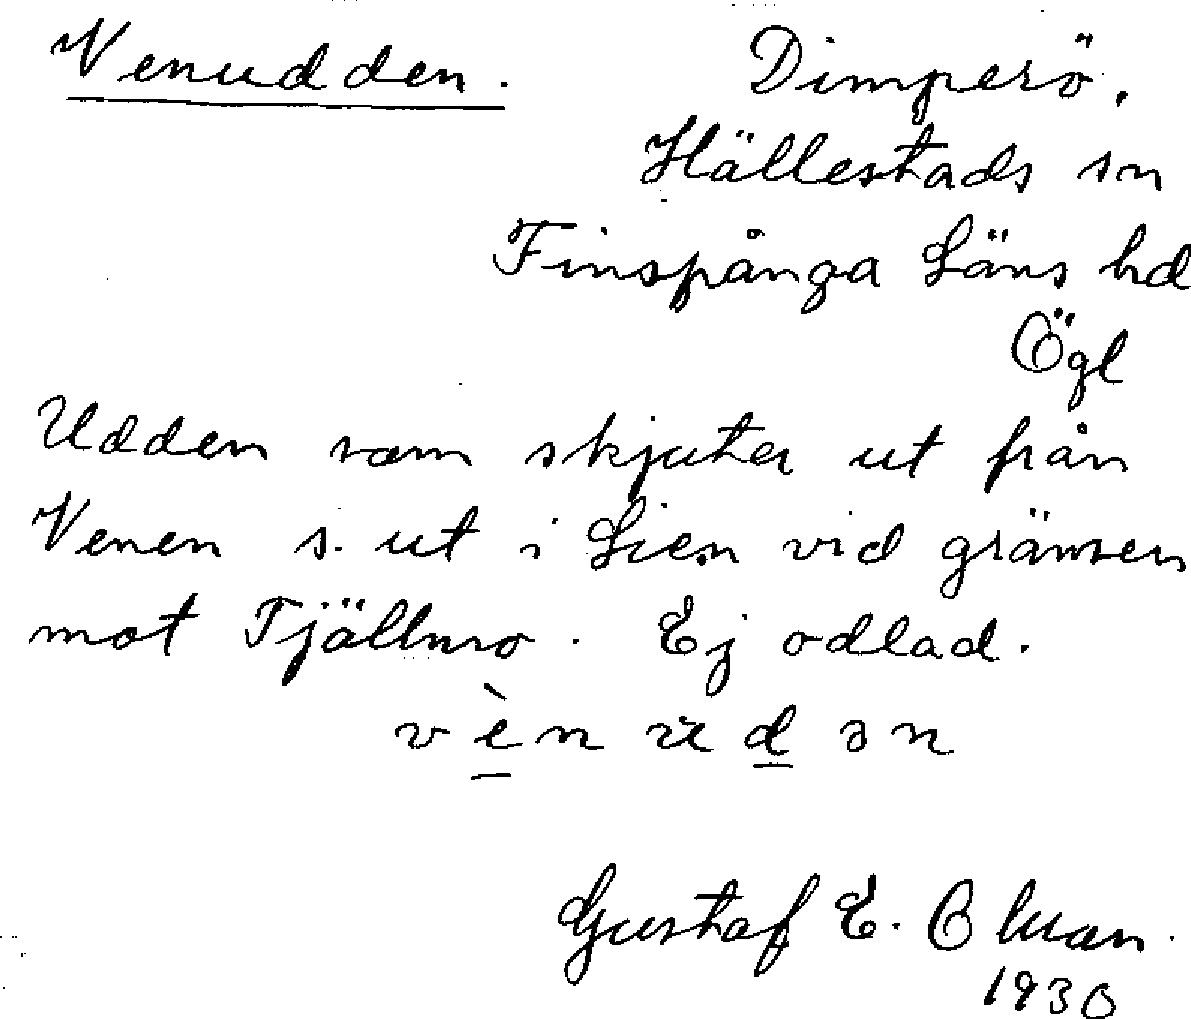 Venudden. Dimperö,
Hällestads sn
Finspånga Läns hd
Ögl
Udden som skjuter ut från
Venen s. ut i Lien vid gränsen
mot Tjällmo. Ej odlad.
vèn ud ən
Gustaf E.
1930